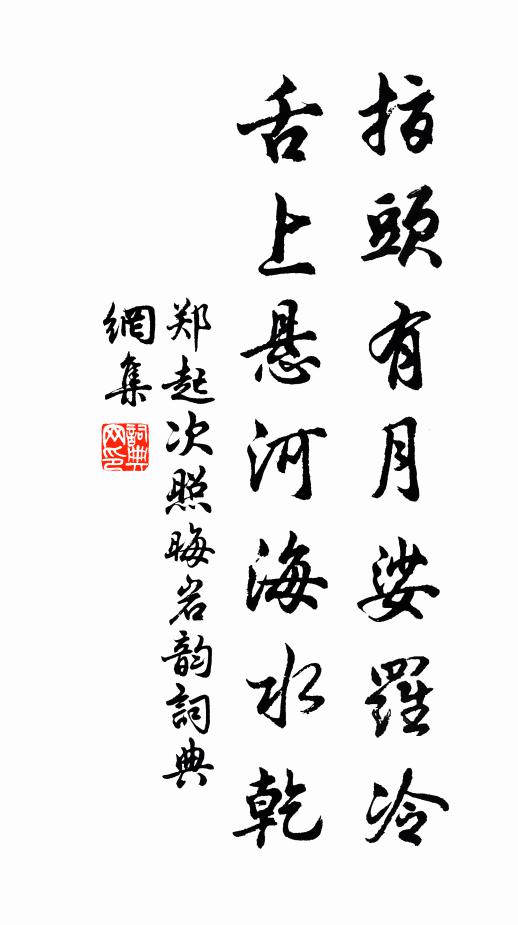 指頭有月娑羅冷
舌上悬河海水乾
郑起次照晦岩韵詞典
網集
詞典
网印